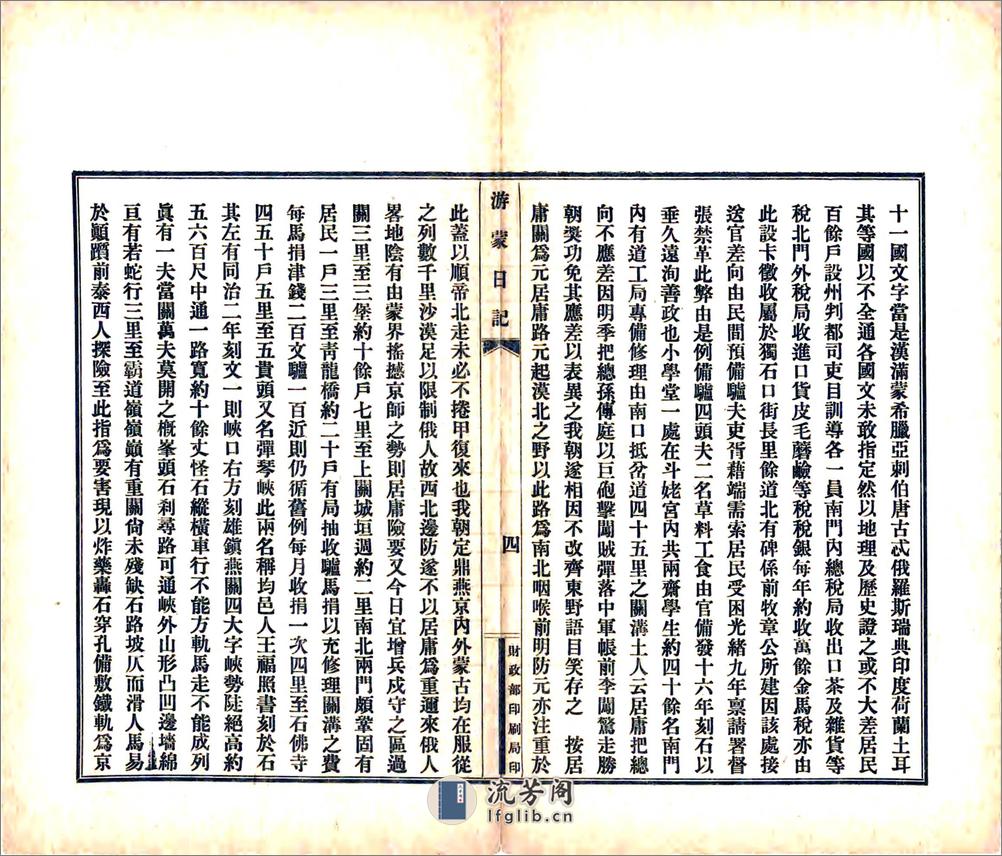 十一國文字當是漢滿蒙希臘亞刺伯唐古忒俄羅斯瑞典印度荷蘭土耳
其等國以不全通各國文未敢指定然以地理及歷史證之或不大差居民
百餘戶設州判都司吏目訓導各一員南門內總稅局收出口茶及雜貨等
稅北門外稅局收進口貨皮毛蘑鹼等稅稅銀每年約收萬餘金馬稅亦由
此設卡徵收屬於獨石口街長里餘道北有碑係前牧章公所建因該處接
遞官差向由民間預備驢夫吏胥藉端需索居民受困光緒九年禀請署督
張禁革此弊由是例備驢四頭夫二名草料工食由官備發十六年刻石以
垂久遠洵善政也小學堂一處在斗姥宮內共兩齋學生約四十餘名南門
內有道工局專備修理由南口抵岔道四十五里之關溝土人云居庸把總
向不應差因明季把總孫傳庭以巨砲擊闖賊彈落中軍帳前李闖驚走勝
朝奬功免其應差以表異之我朝遂相因不改齊東野語目笑存之　按居
庸關爲元居庸路元起漠北之野以此路爲南北咽喉前明防元亦注重於
游蒙日記
四
財政部印刷局印
此蓋以順帝北走未必不捲甲復來也我朝定鼎燕京內外蒙古均在服從
之列數千里沙漠足以限制俄人故西北邊防遂不以居庸爲重邇來俄人
畧地陰有由蒙界搖撼京師之勢則居庸險要又今日宜增兵戍守之區過
關三里至三堡約十餘戶七里至上關城垣週約二里南北兩門頗鞏固有
居民一戶三里至靑龍橋約二十戶有局抽收驢馬捐以充修理關溝之費
每馬捐津錢二百文驢一百近則仍循舊例每月收捐一次四里至石佛寺
四五十戶五里至五貴頭又名彈琴峽此兩名稱均邑人王福照書刻於石
其左有同治二年刻文一則峽口右方刻雄鎭燕關四大字峽勢陡絕高約
五六百尺中通一路寬約十餘丈怪石縱橫車行不能方軌馬走不能成列
眞有一夫當關萬夫莫開之槪峯頭石刹尋路可通峽外山形凸凹邊墻綿
亘有若蛇行三里至霸道嶺嶺巔有重關尙未殘缺石路坡仄而滑人馬易
於顚躓前泰西人探險至此指爲要害現以炸藥轟石穿孔備敷鐵軌爲京
流芳阁
lfglib.cn